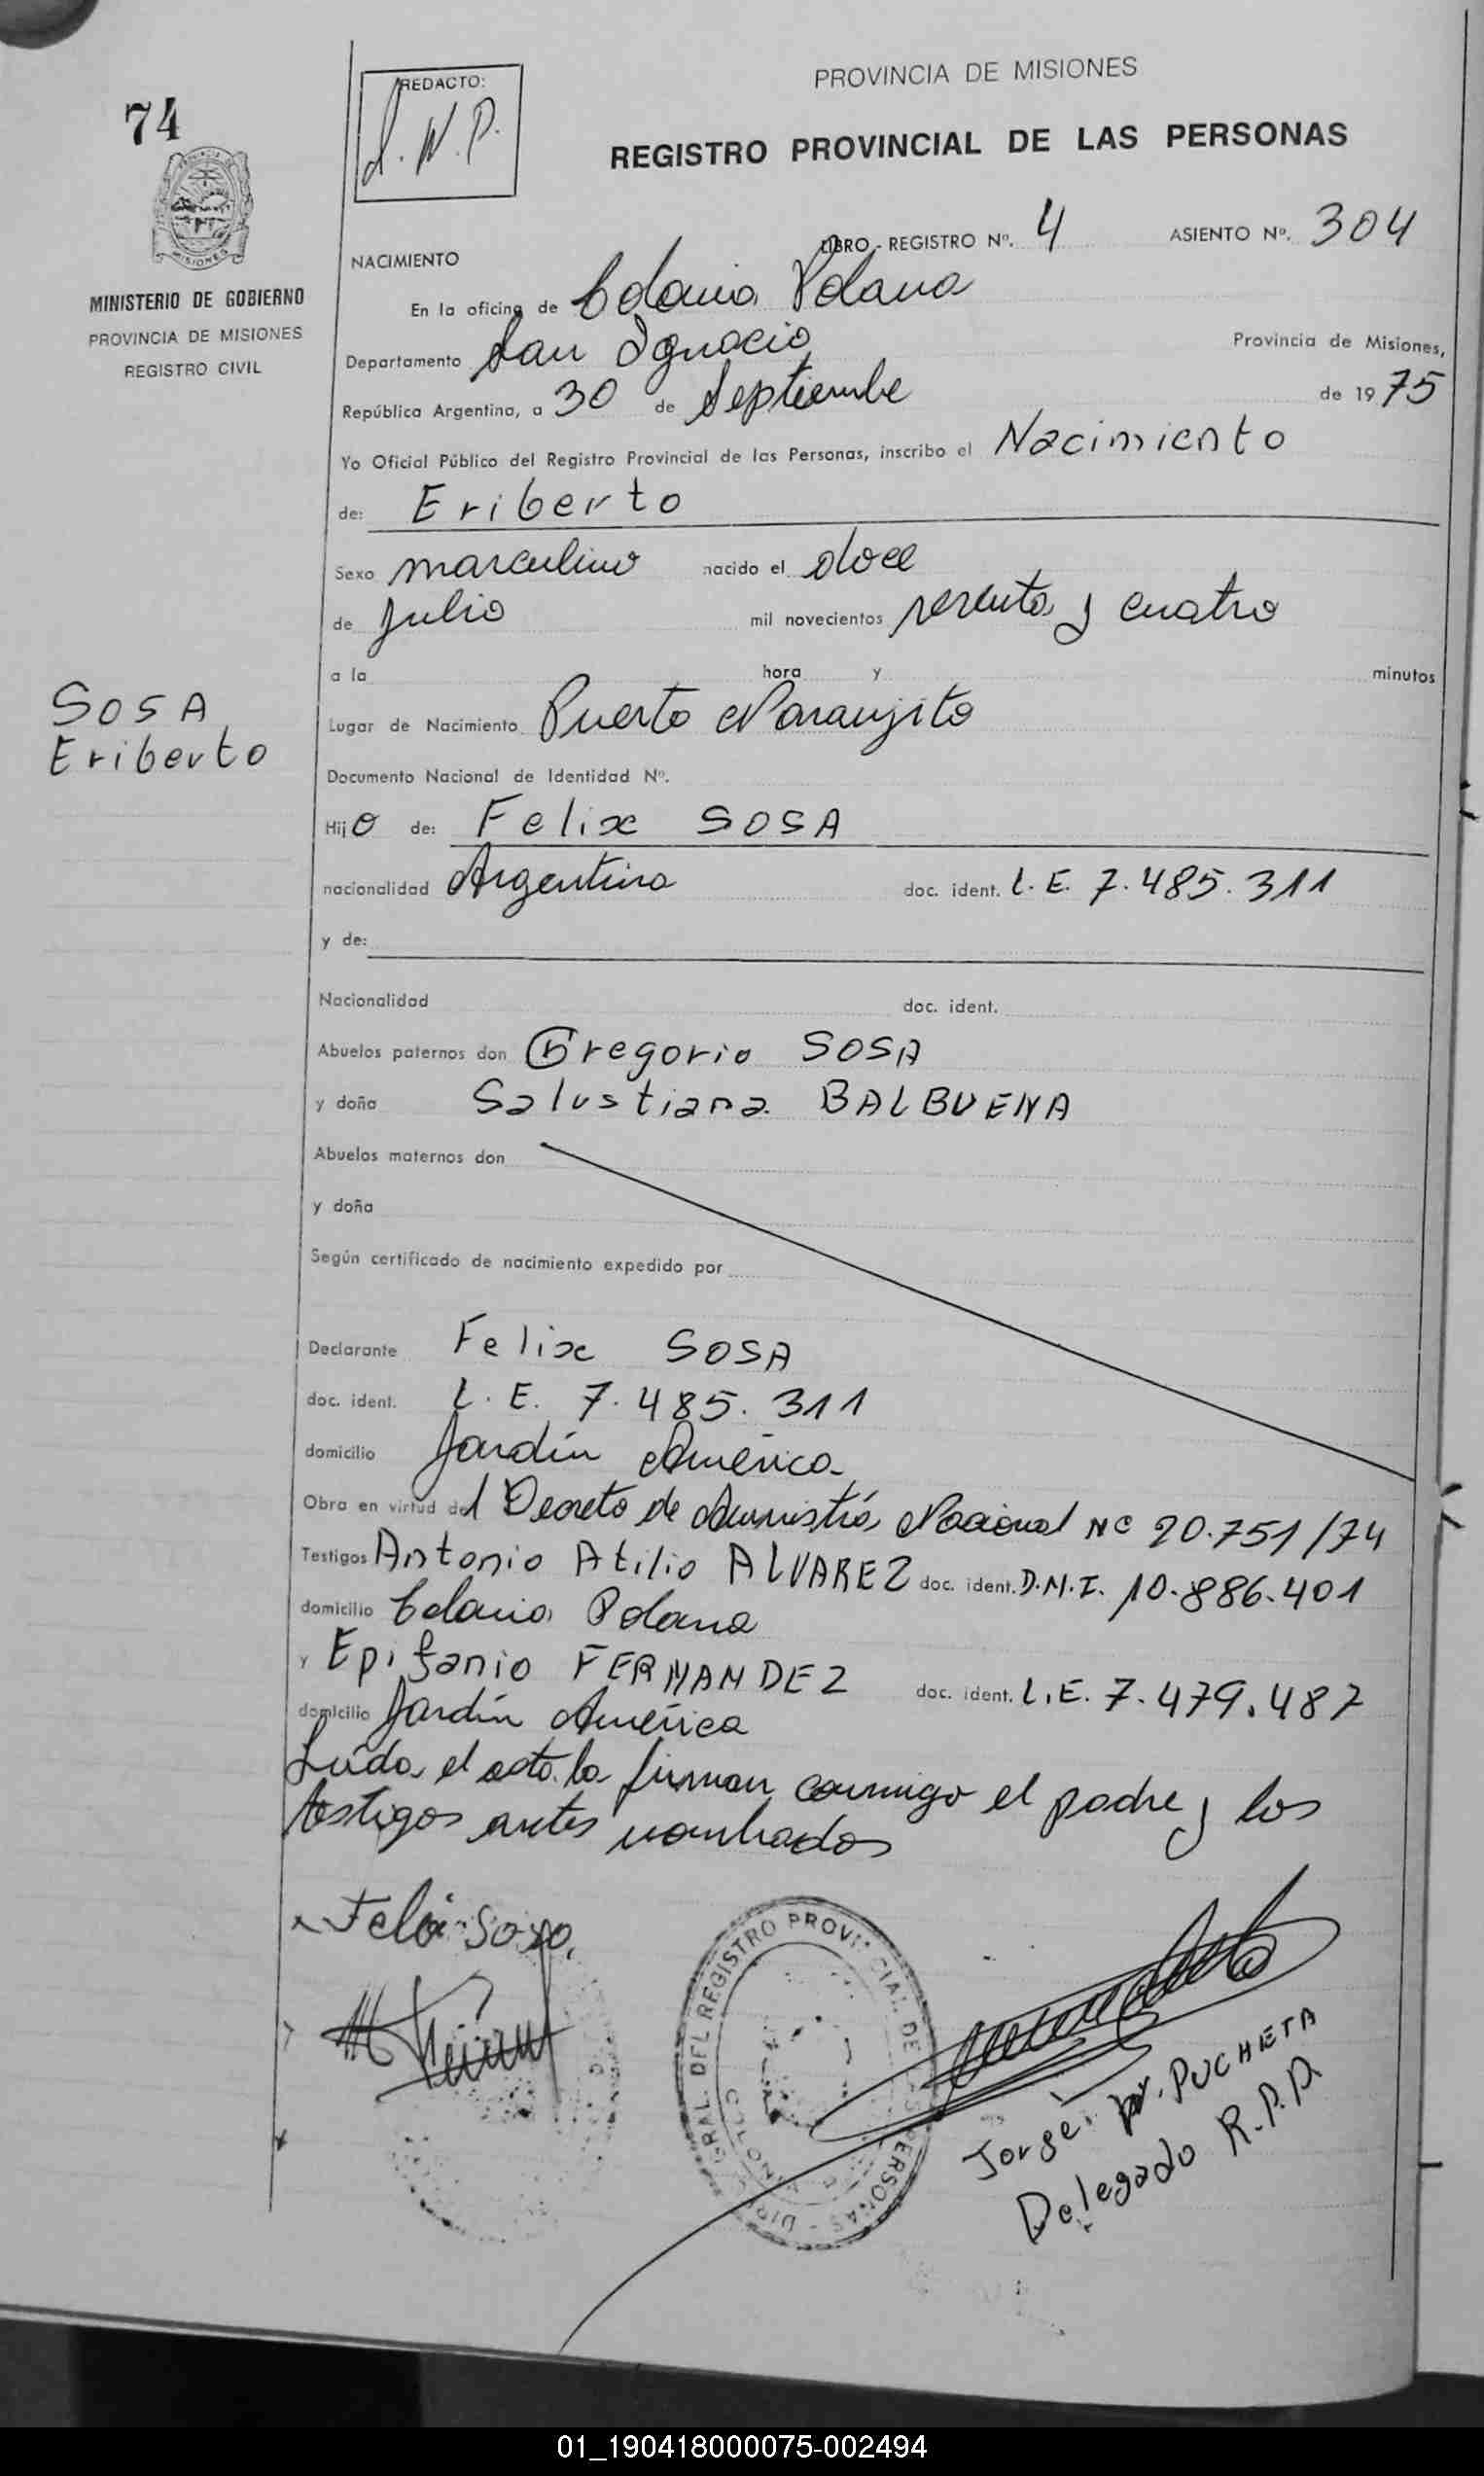 74
REDACTO:
J. N. P.
PROVINCIA DE MISIONES
REGISTRO PROVINCIAL DE LAS PERSONAS
MISIONES
MINISTERIO DE GOBIERNO
PROVINCIA DE MISIONES
REGISTRO CIVIL
LIBRO - REGISTRO Nº. 4 ASIENTO Nº. 304
NACIMIENTO
En la oficina de Colonia Polana
Departamento San Ignacio Provincia de Misiones,
República Argentina, a 30 de Septiembre de 1975
Yo Oficial Público del Registro Provincial de las Personas, inscribo el Nacimiento
de: Eriberto
Sexo masculino nacido el doce
de Julio mil novecientos sesenta y cuatro
a la hora y minutos
SOSA
Eriberto
Lugar de Nacimiento Puerto Naranjito
Documento Nacional de Identidad Nº.
Hijo de: Felix SOSA
nacionalidad Argentina doc. ident. L. E. 7.485.311
y de:
Nacionalidad doc. ident.
Abuelos paternos don Gregorio SOSA
y doña Salustiana BALBUENA
Abuelos maternos don
y doña
Según certificado de nacimiento expedido por
Declarante Felix SOSA
doc. ident. L. E. 7.485.311
domicilio Jardín América
Obra en virtud del Decreto de Amnistía Nacional Nº 20.751/74
Testigos Antonio Atilio ALVAREZ doc. ident. D.N.I. 10.886.401
domicilio Colonia Polana
y Epifanio FERNANDEZ doc. ident. L.E. 7.479.487
domicilio Jardín América
Leída el acta la firman conmigo el padre y los
testigos antes nombrados
Felix Sosa
GRAL. DEL REGISTRO PROVINCIAL DE LAS PERSONAS - DIREC
Jorge PUCHETA
Delegado R.P.P.
01_190418000075-002494